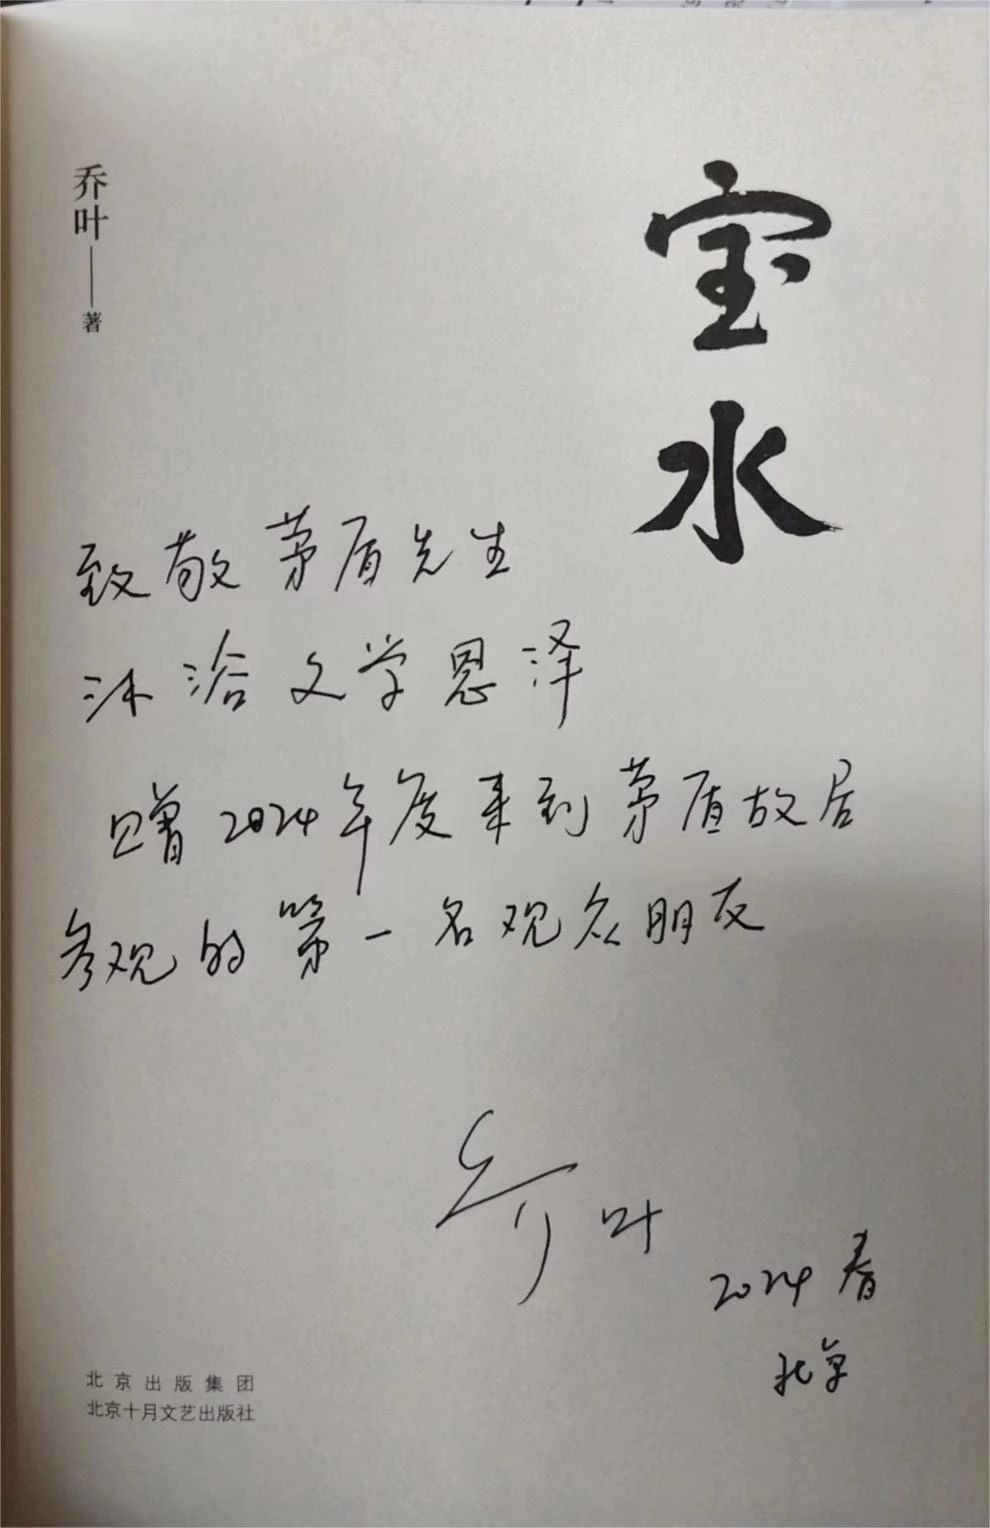 宝水
乔叶——著
致敬茅盾先生
沐浴文学恩泽
赠2024年度来到茅盾故居
参观的第一名观众朋友
乔叶
2024春
北京
北京出版集团
北京十月文艺出版社